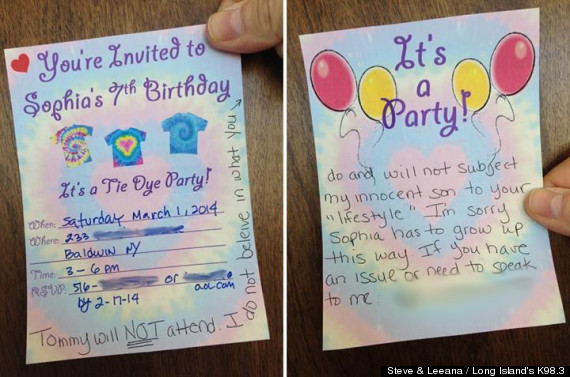 You're Invited to
Sophia's 7th Birthday
It's a Tie Dye Party!
When: Saturday March 1, 2014
Where: 233
Baldwin NY
Time: 3 - 6 PM
RSVP: 516- or aol.com
by 2-17-14
Tommy will NOT attend. I
do not believe in what you
It's
a
Party!
do and will not subject
my innocent son to your
"lifestyle". I'm sorry
Sophia has to grow up
this way. If you have
an issue or need to speak
to me
Steve & Leeana / Long Island's K98.3